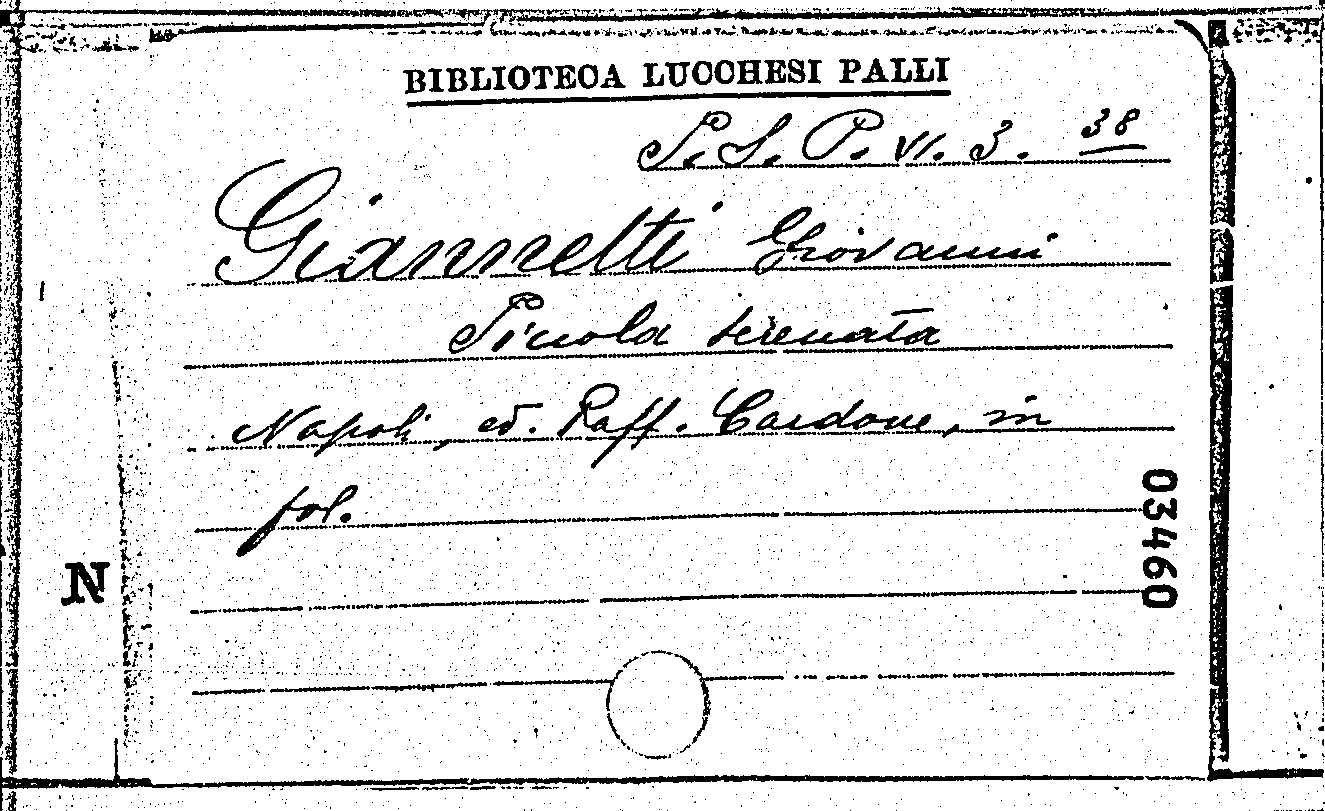 BIBLIOTECA LUCCHESI PALLI
S. L. P. VI. 3. 38
Giannetti Giovanni
Piccola serenata
Napoli, ed. Raff. Cardone, in
fol.
03460
N